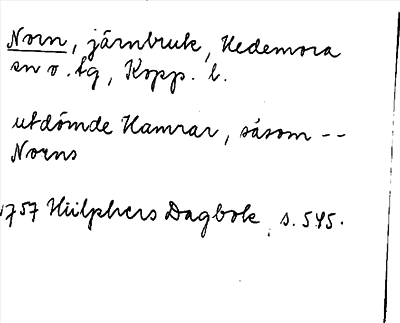 Norn, järnbruk, Hedemora
sn o. tg, Kopp. l.
utdömde Hamrar, såsom --
Norns
1757 Hülphers Dagbok, s. 545.